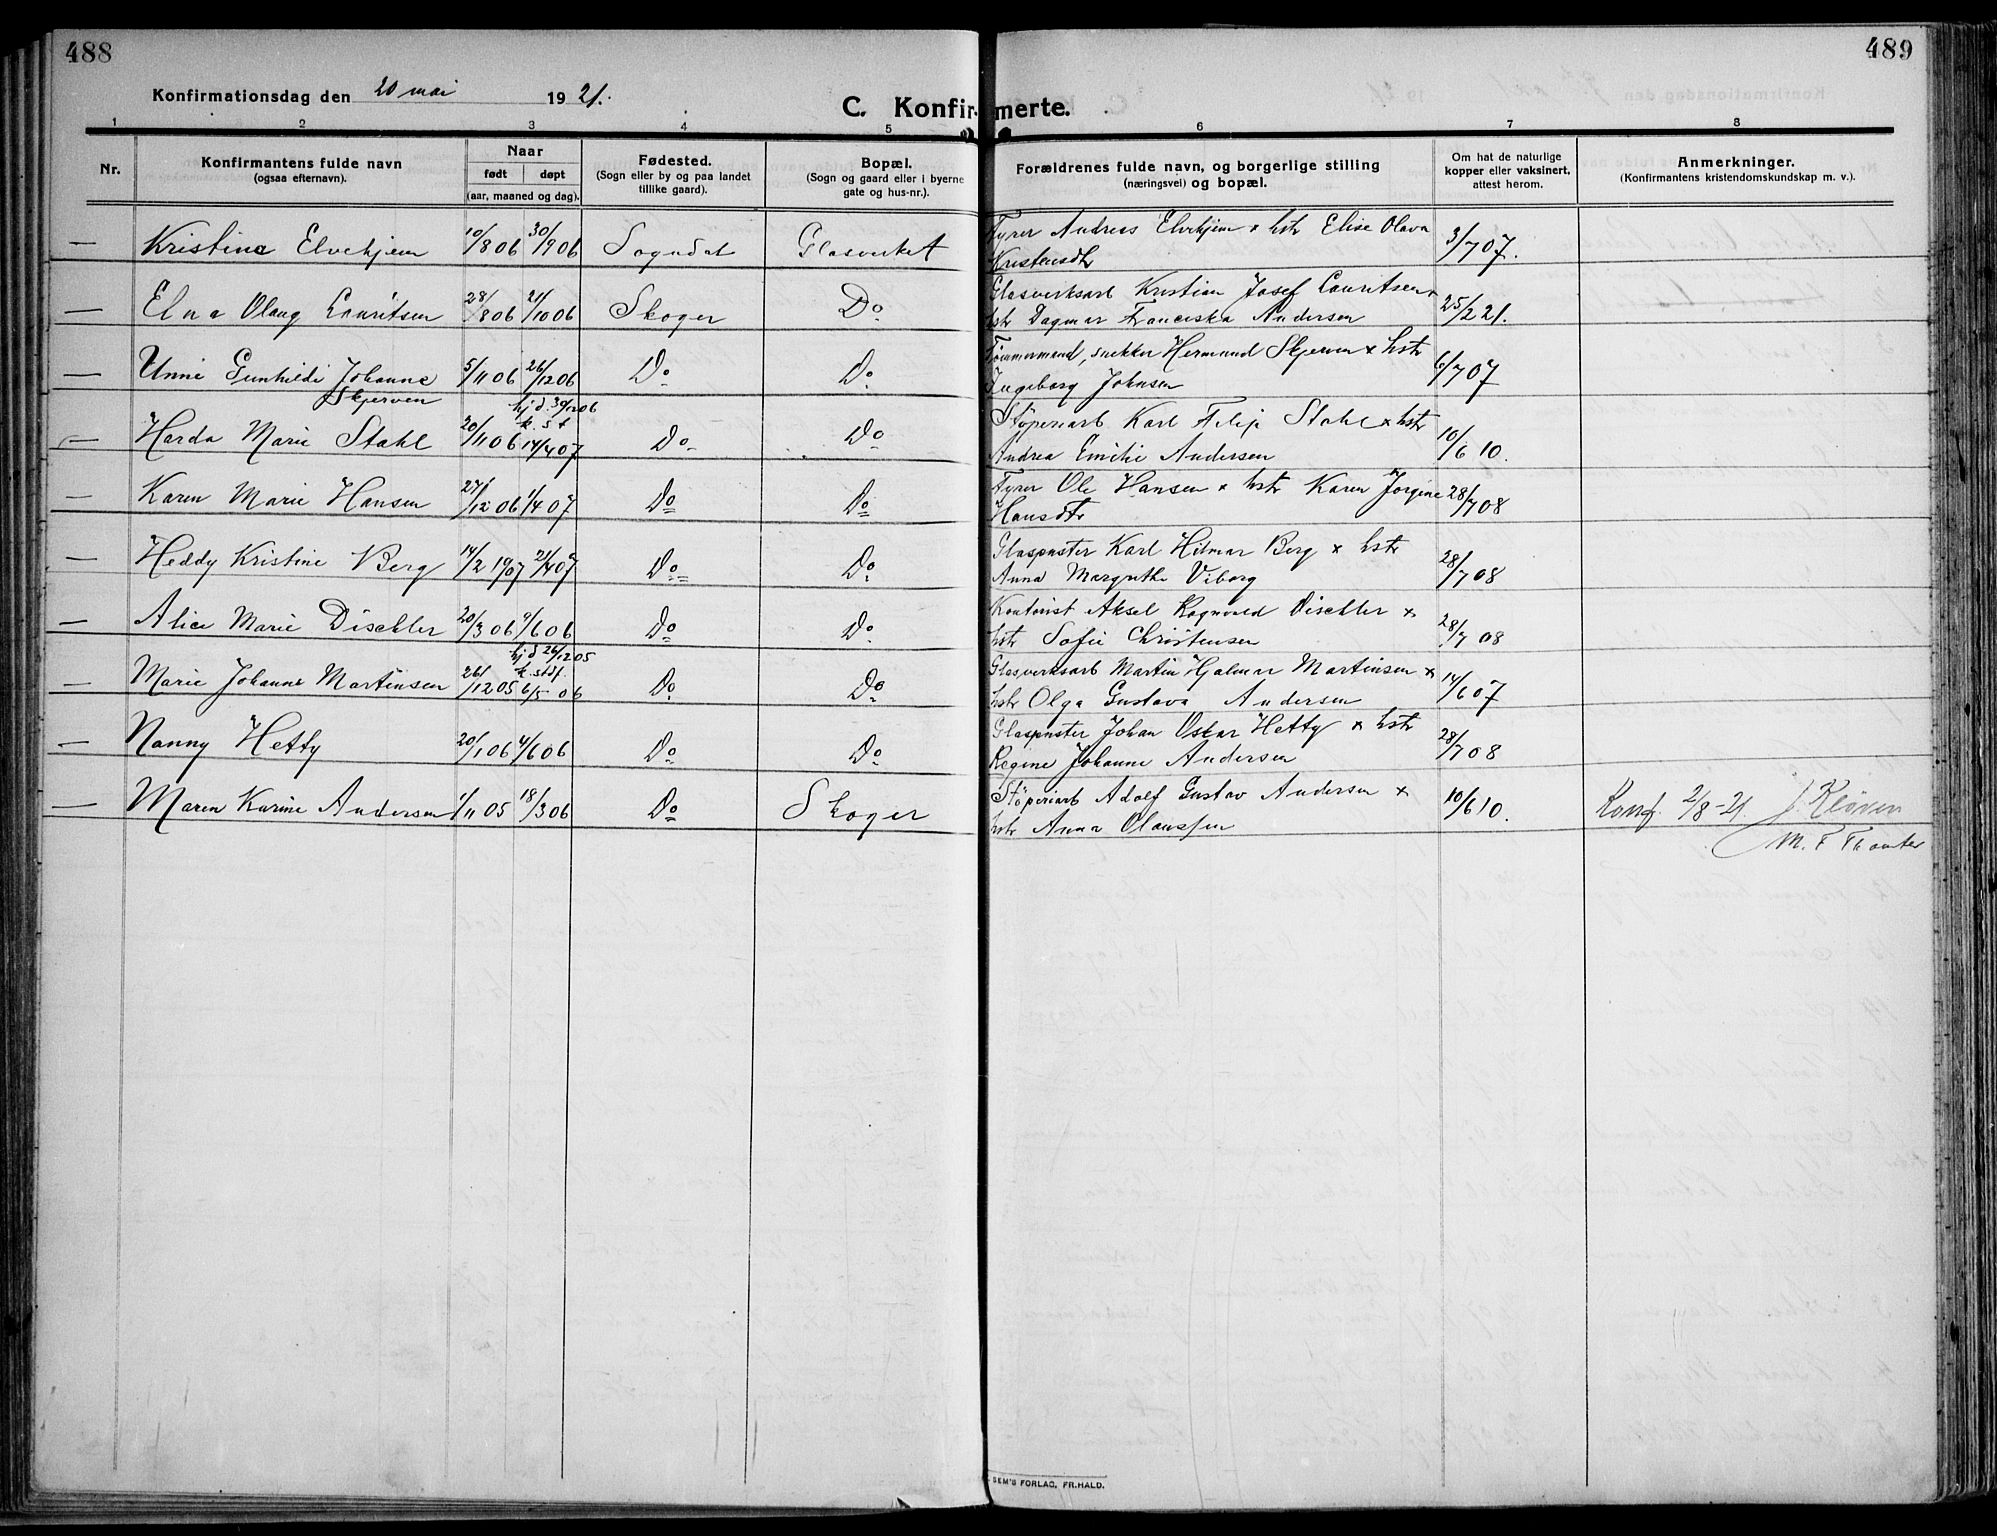 488
489
Konfirmationsdag den 20 mai 1921.
C. Konfirmerte.
1 2 3 4 5 6 7 8
Nr.
Konfirmantens fulde navn
(ogsaa efternavn).
Naar
født døpt
(aar, maaned og dag).
Fødested.
(Sogn eller by og paa landet
tillike gaard).
Bopæl.
(Sogn og gaard eller i byerne
gate og hus-nr.).
Forældrenes fulde navn, og borgerlige stilling
(næringsvei) og bopæl.
Om hat de naturlige
kopper eller vaksinert,
attest herom.
Anmerkninger.
(Konfirmantens kristendomskundskap m. v.).
— Kristine Elvekjem 10/8 06 30/9 06 Sogndal Glasverket Fyrer Andreas Elvekjem × hstr Elise Olava 3/7 07.
Kristensdtr
— Elna Olaug Lauritsen 28/8 06 21/10 06 Skoger Do Glasverksarb Kristian Josef Lauritsen × 25/2 21.
hstr Dagmar Franciska Andersen
— Unni Gunhildi Johanne 5/11 06 26/12 06 Do Do Tømmermand, snekker Hermund Skjerven × hstr 6/7 07
Skjerven
Ingeborg Johnsen
hj.d. 30/12 06
k. st
— Harda Marie Stahl 20/11 06 14/4 07 Do Do Støperiarb Karl Filip Stahl × hstr 10/6 10.
Andrea Emilie Andersen
— Karen Marie Hansen 27/12 06 1/4 07 Do Do Fyrer Ole Hansen × hstr Karen Jorgine 28/7 08
Hansdtr
— Heddy Kristine Berg 14/2 1907 21/4 07 Do Do Glaspuster Karl Hilmar Berg × hstr 28/7 08
Anna Margrethe Viborg
— Alice Marie Dischler 20/3 06 9/6 06 Do Do Kontorist Aksel Ragnvald Dischler × 28/7 08
hstr Sofie Christensen
hj d 26/12 05
k. stdf.
— Marie Johanne Martinsen 26/12 05 6/5 06 Do Do Glasverksarb Martin Hjalmar Martinsen × 14/6 07
hstr Olga Gustava Andersen
— Nanny Hetty 20/1 06 4/6 06 Do Do Glaspuster Johan Oskar Hetty × hstr 28/7 08
Regine Johanne Andersen
— Maren Karine Andersen 1/11 05 18/3 06 Do Skoger Støperiarb Adolf Gustav Andersen × 10/6 10. Konf. 2/8-21 J. Kløven
hstr Anna Olaussen
M. F Thomter
SEM'S FORLAG, FR.HALD.